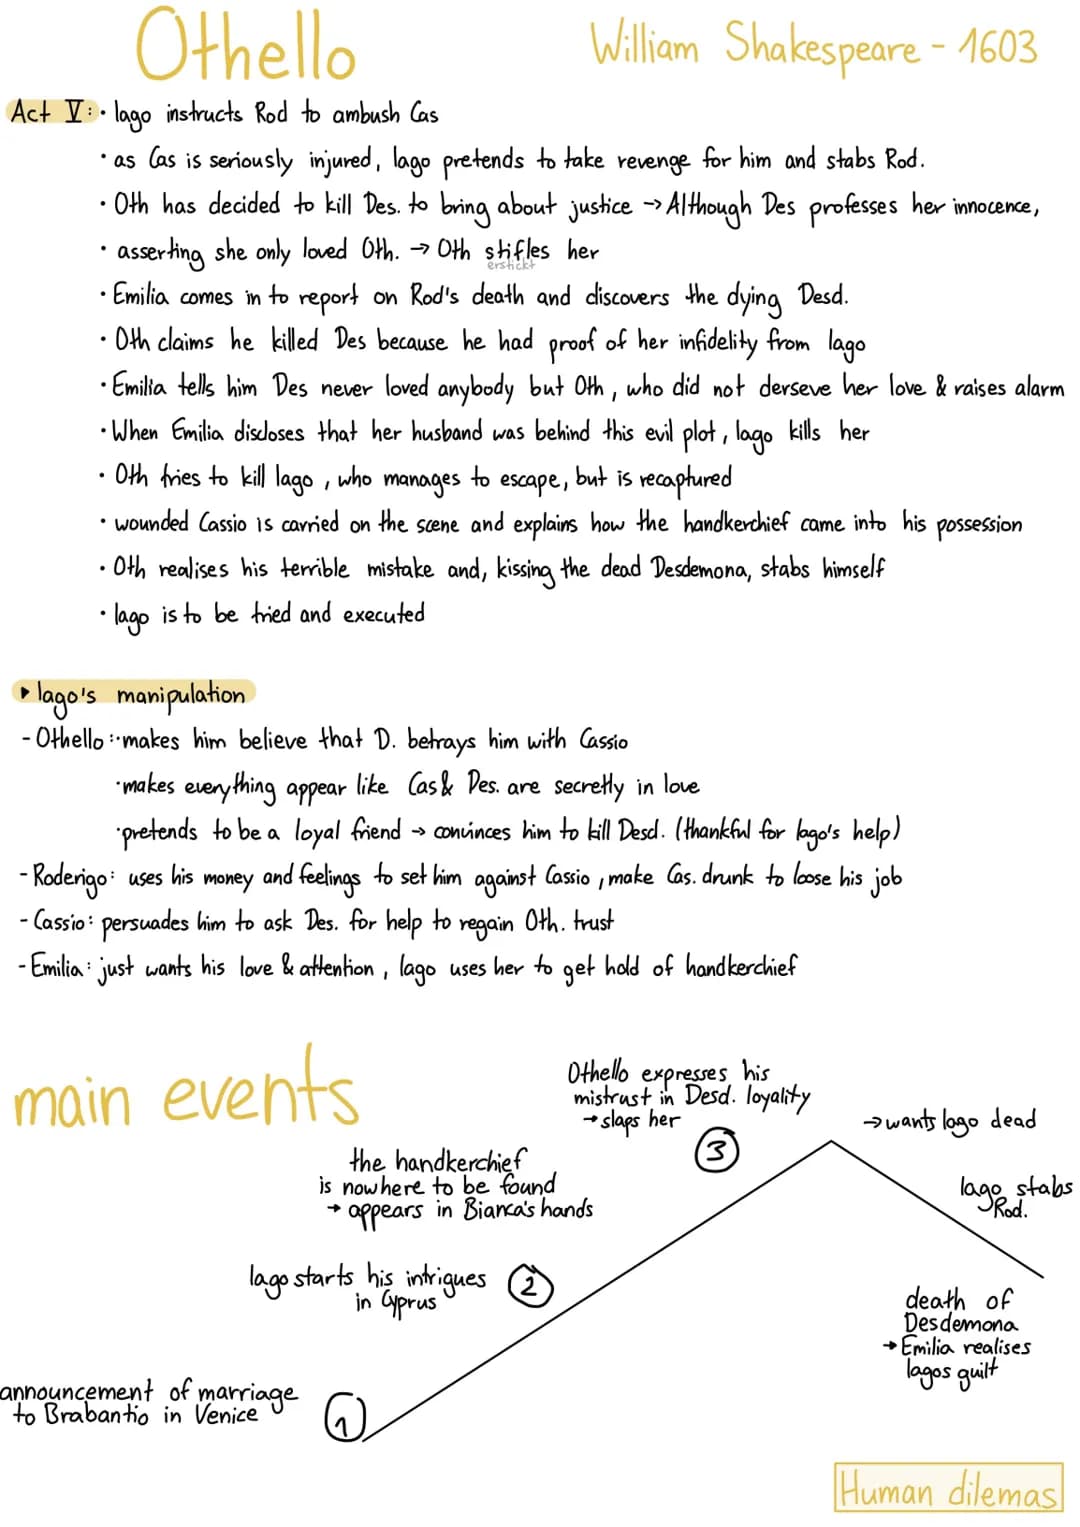 Othello
William Shakespeare - 1603
Act V: · Iago instructs Rod to ambush Cas
· as Cas is seriously injured, Iago pretends to take revenge for him and stabs Rod.
· Oth has decided to kill Des. to bring about justice → Although Des professes her innocence,
· asserting she only loved Oth. → Oth stifles her
erstickt
· Emilia comes in to report on Rod's death and discovers the dying Desd.
· Oth claims he killed Des because he had proof of her infidelity from Iago
· Emilia tells him Des never loved anybody but Oth, who did not derseve her love & raises alarm
· When Emilia discloses that her husband was behind this evil plot, Iago kills her
· Oth tries to kill Iago, who manages to escape, but is recaptured
· wounded Cassio is carried on the scene and explains how the handkerchief came into his possession
· Oth realises his terrible mistake and, kissing the dead Desdemona, stabs himself
· Iago is to be tried and executed
▸ Iago's manipulation
- Othello: · makes him believe that D. betrays him with Cassio
· makes everything appear like Cas & Des. are secretly in love
· pretends to be a loyal friend → convinces him to kill Desd. (thankful for Iago's help)
- Roderigo: uses his money and feelings to set him against Cassio, make Cas. drunk to loose his job
- Cassio: persuades him to ask Des. for help to regain Oth. trust
- Emilia: just wants his love & attention, Iago uses her to get hold of handkerchief
main events
Othello expresses his
mistrust in Desd. loyality
→ slaps her
③
→ wants Iago dead
the handkerchief
is nowhere to be found
→ appears in Bianca's hands
Iago stabs
Rod.
Iago starts his intrigues
in Cyprus
②
death of
Desdemona
→ Emilia realises
Iagos guilt
announcement of marriage
to Brabantio in Venice
①
Human dilemas